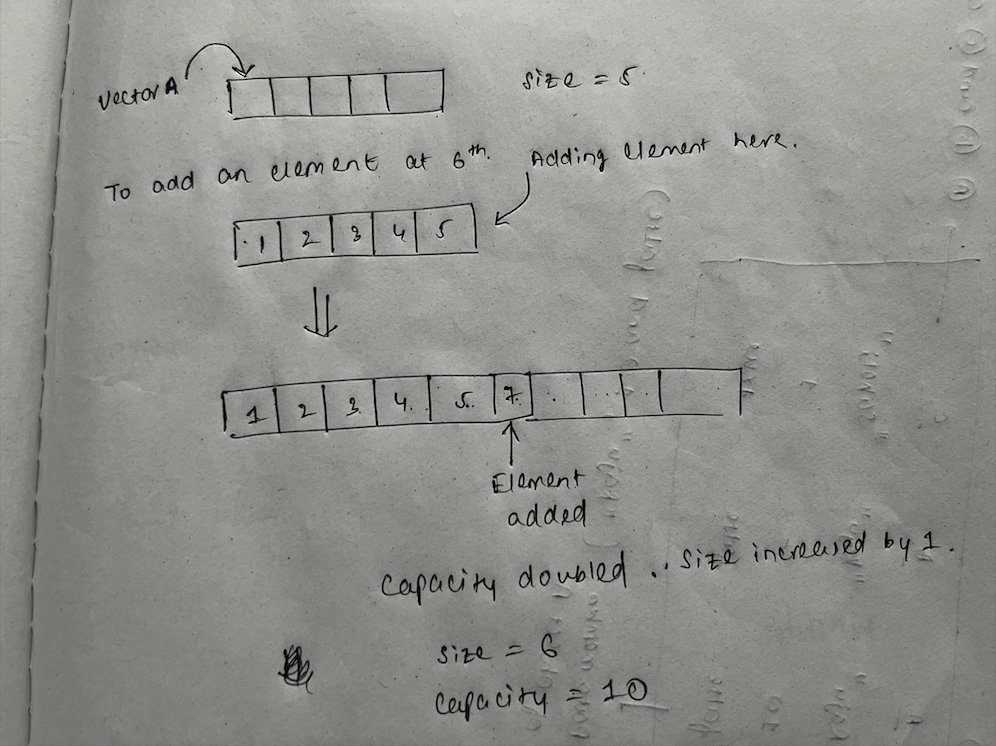 Vector A
size = 5.
To add an element at 6th.
Adding element here.
1 2 3 4 5
1 2 3 4. 5.. 7.
Element
added
Capacity doubled .. size increased by 1.
size = 6
Capacity = 10